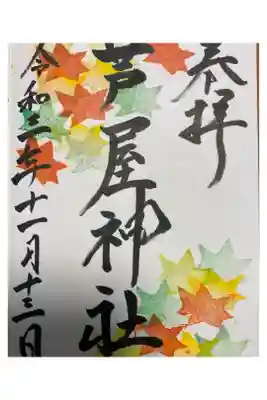 奉拝
芦屋神社
令和三年十一月十三日